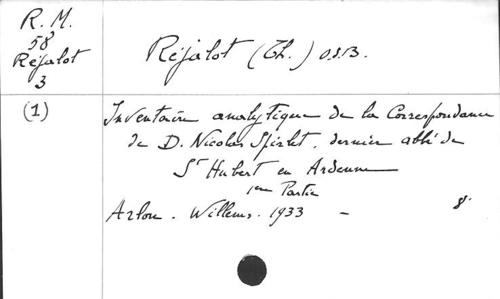 R. M.
58
Réjalot
3
Réjalot (Th.) O.S.B.
(1)
Inventaire analytique de la Correspondance
de D. Nicolas Spirlet, dernier abbé de
St Hubert en Ardenne
1ère Partie
Arlon. Willems. 1933 — 8°